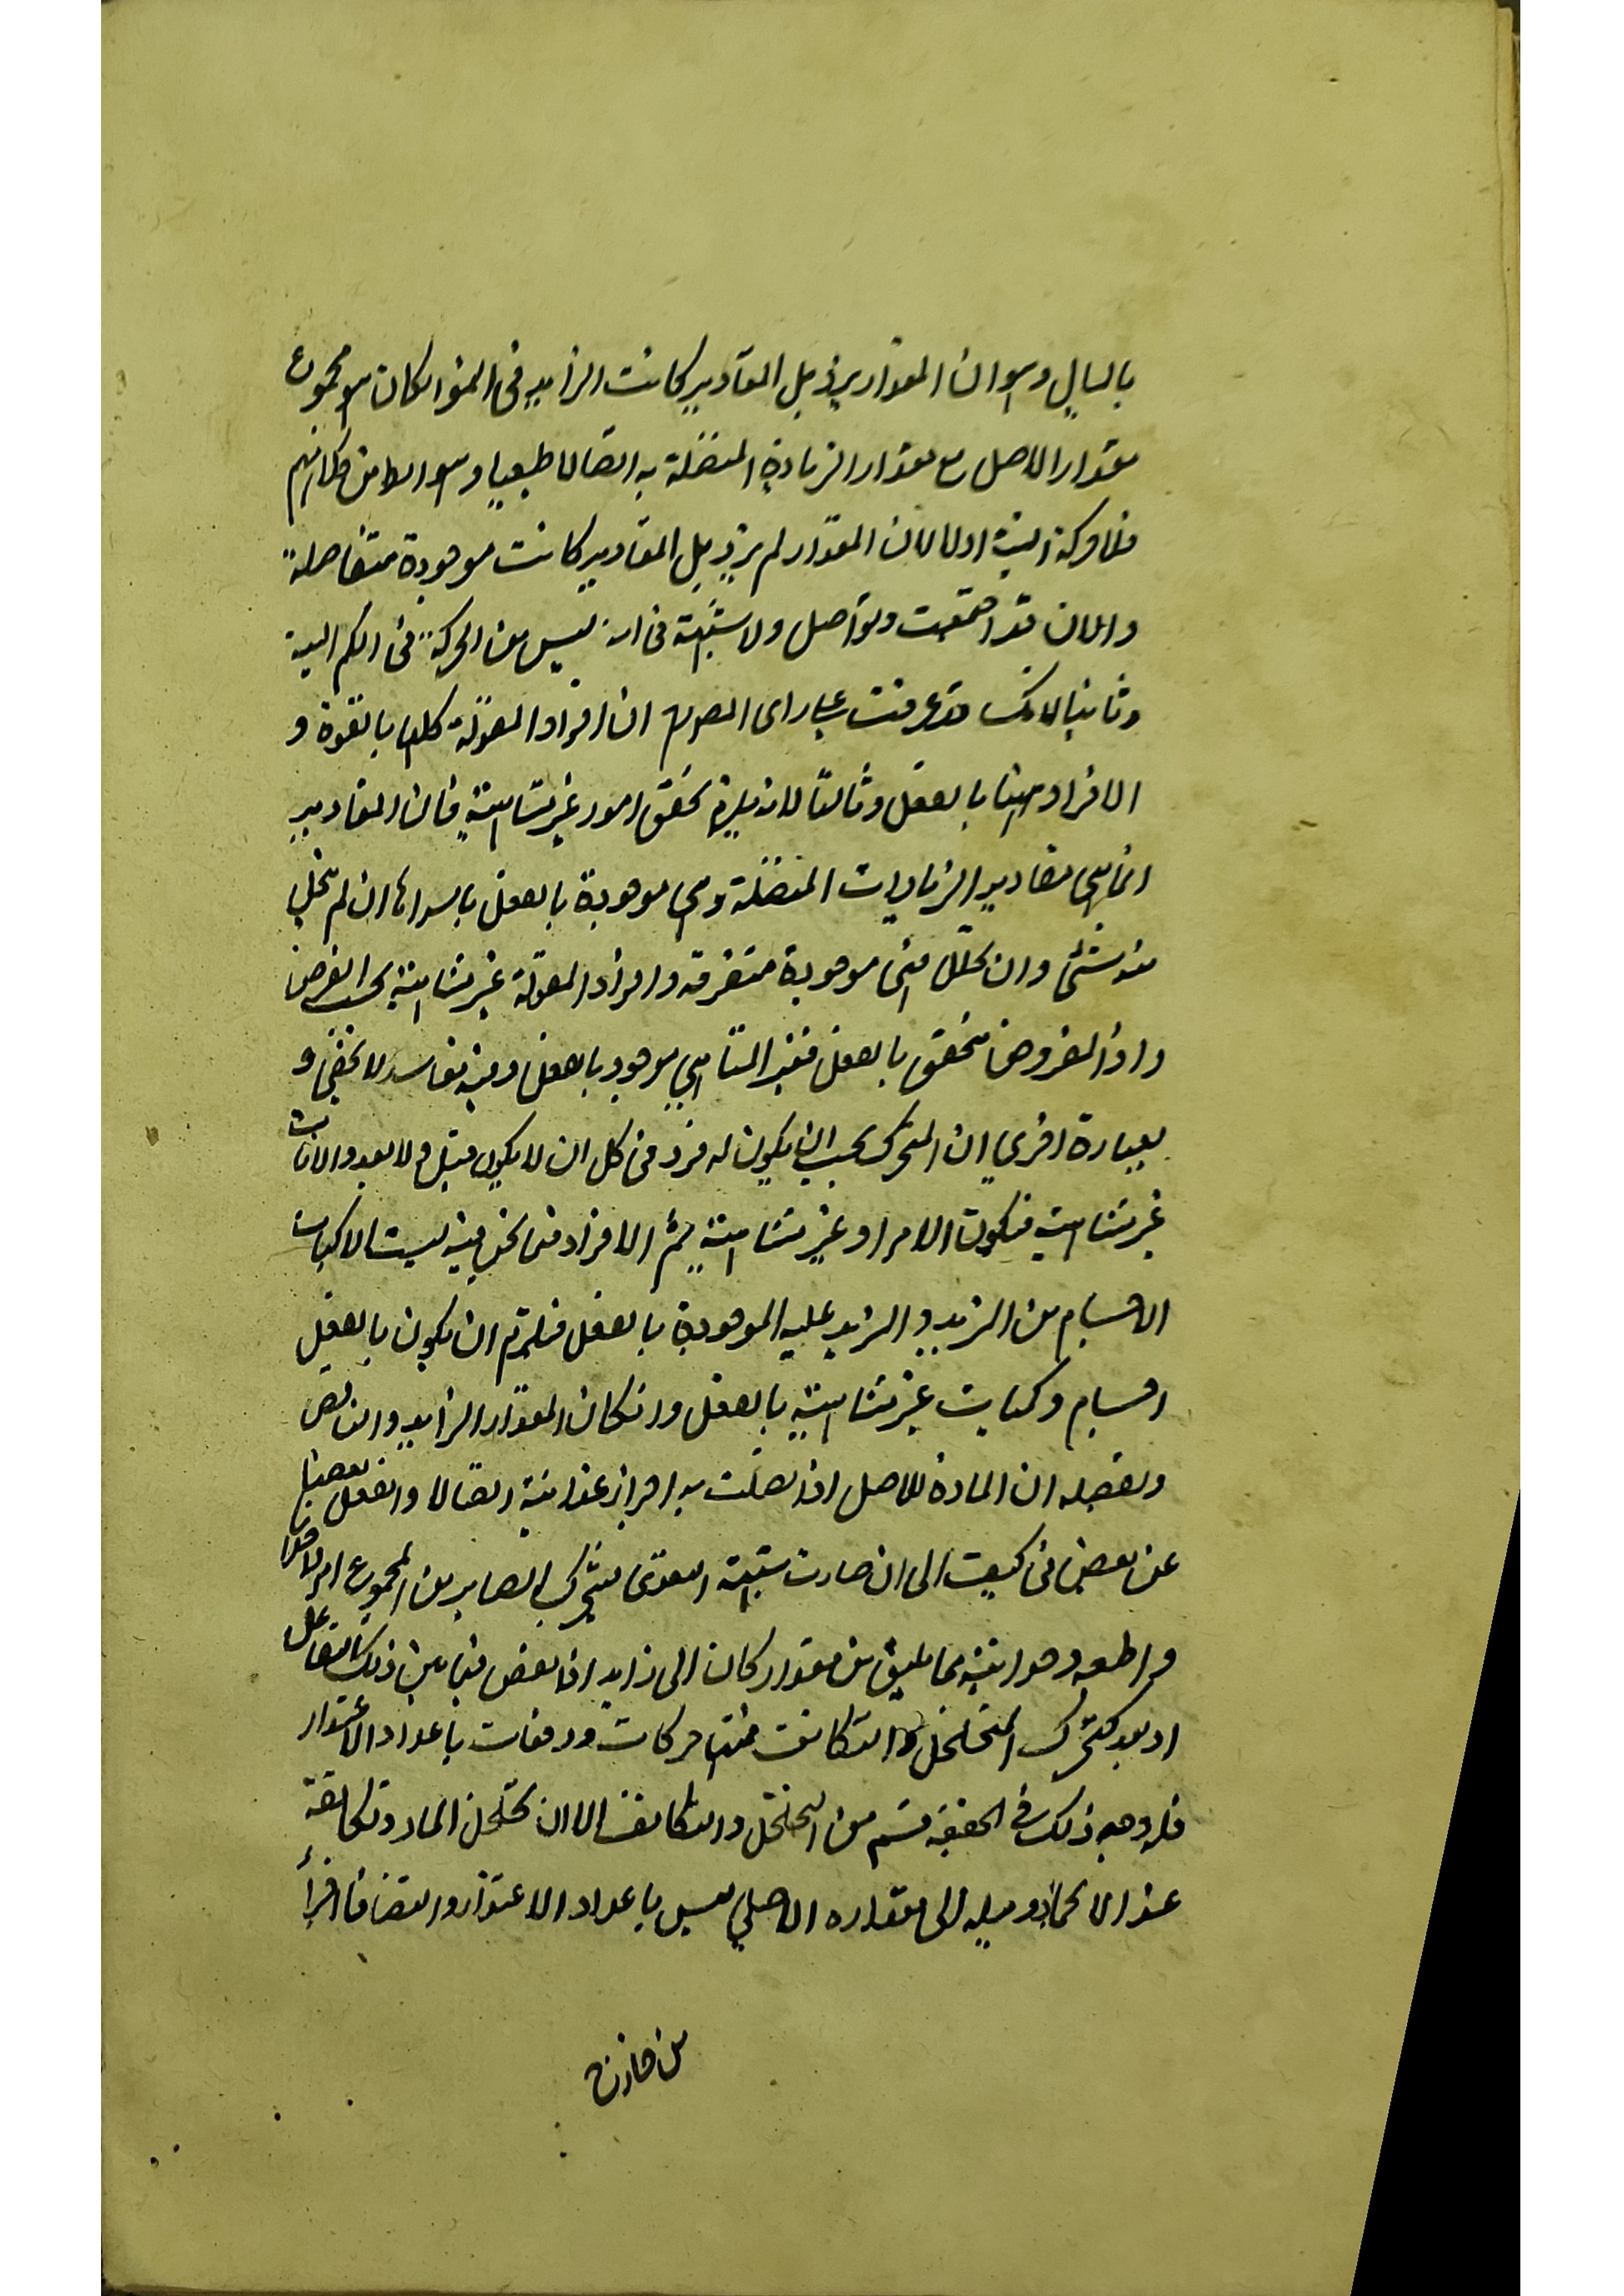 بالبال وهو ان المقدار يزيد بل المقادير كانت الزايد فى النمو ان كان هو مجموع
مقدار الاصل مع مقدار الزيادة المتصلة به اتصالا طبعيا وهو الظ من كلامهم
فلا حركة البتة اولا لان المقدار لم يزيد بل المقادير كانت موجودة متفاصلة
والان قد اجتمعت وتواصل ولا شبهة فى انه ليس من الحركة فى الكم البتة
وثانيا لانك قد عرفت على راى المص ان افراد المقولة كلها بالقوة و
الافراد ههنا بالفعل وثالثا لانه يلزم تحقق امور غير متناهية فان المقادير
انما هى مقادير الزيادات المتصلة وهى موجودة بالفعل باسرها ان لم يتحلل
منه شئ وان تحلل فهى موجودة متفرقه وافراد المقولة غير متناهية بحسب الفرض
واذ المفروض متحقق بالفعل فغير المتناهى موجود بالفعل وفيه مفاسد لا تخفى و
بعبارة اخرى ان المتحرك يجب ان يكون له فرد فى كل ان لا يكون قبل ولا بعد والانات
غير متناهية فيكون الافراد غير متناهية ثم الافراد فى نحن فيه ليست الا كميات
الاجسام من المزيد والمزيد عليه الموجودة بالفعل فيلزم ان يكون بالفعل
اجسام وكميات غير متناهية بالفعل وان كان المقدار الزايد والناقص
وتفصيله ان المادة للاصل اذا اتصلت به اجزاء غذائية اتصالا وانفعل بعضها
عن بعض فى كيفيته الى ان صارت شبيهة المغتذى يتحرك الصاير من المجموع امرا واحدا
فى اطعمه وجوانبه مما يليق من مقدار كان الى زايد اذا بعض فيما بين ذلك التفاعل
او بعد كتحرك المتخلخل والتكاثف فثم حركات ودفعات باعداد الاغتذاء
فله وجه ذلك فى الحقيقة قسم من التخلخل والتكاثف الا ان تخلخل الماء وتكاثفه
عند الانجماد وميله الى مقداره الاصلى ليس باعداد الاغتذاء وانضياف اجزاء
من خارج